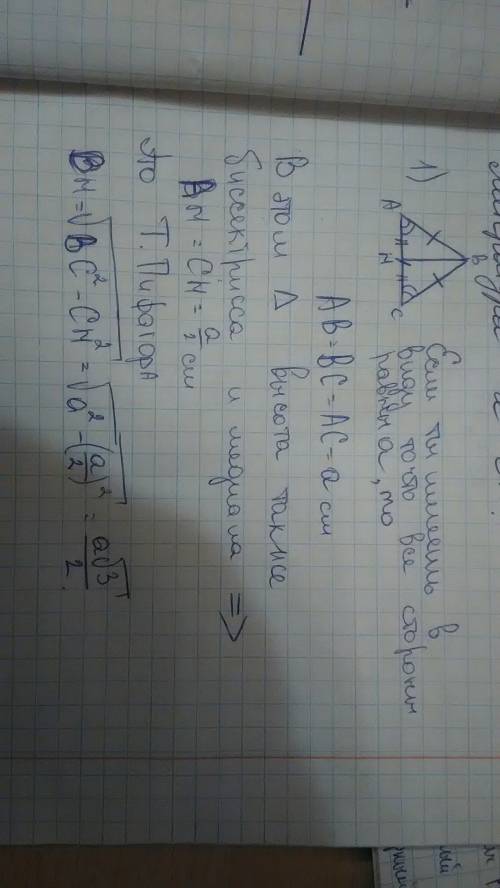 1)
B
A
N
C
Если ты имеешь в
виду то что все стороны
равны a, то
AB = BC = AC = a см
В этом Δ высота также
биссектрисса и медиана =>
BN = CN = a/2 см
По Т. Пифагора
BN = √BC² - CN² = √a² - (a/2)² = a√3/2.